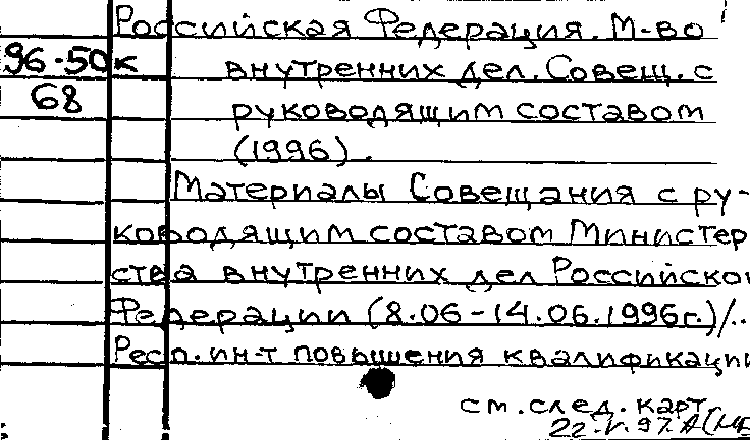 Российская Федерация. М-во
96-50к внутренних дел. Совещ. с
68 руководящим составом
(1996).
Материалы Совещания с ру-
ководящим составом Министер
ства внутренних дел Российско
Федерации (8.06-14.06.1996г.)/..
Респ. ин-т повышения квалификаци
см. след. карт.
22.V.97.